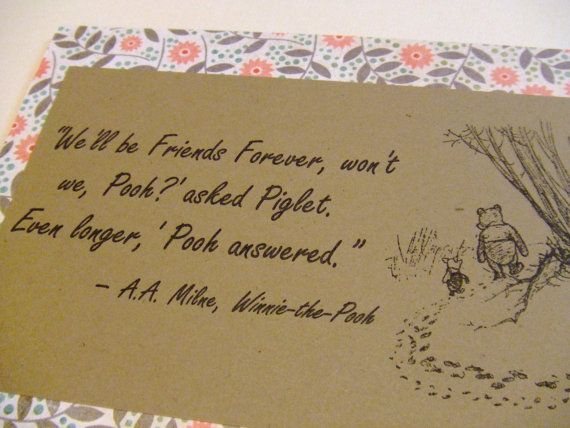 "We'll be Friends Forever, won't
we, Pooh?' asked Piglet.
Even longer,' Pooh answered."
– A.A. Milne, Winnie-the-Pooh